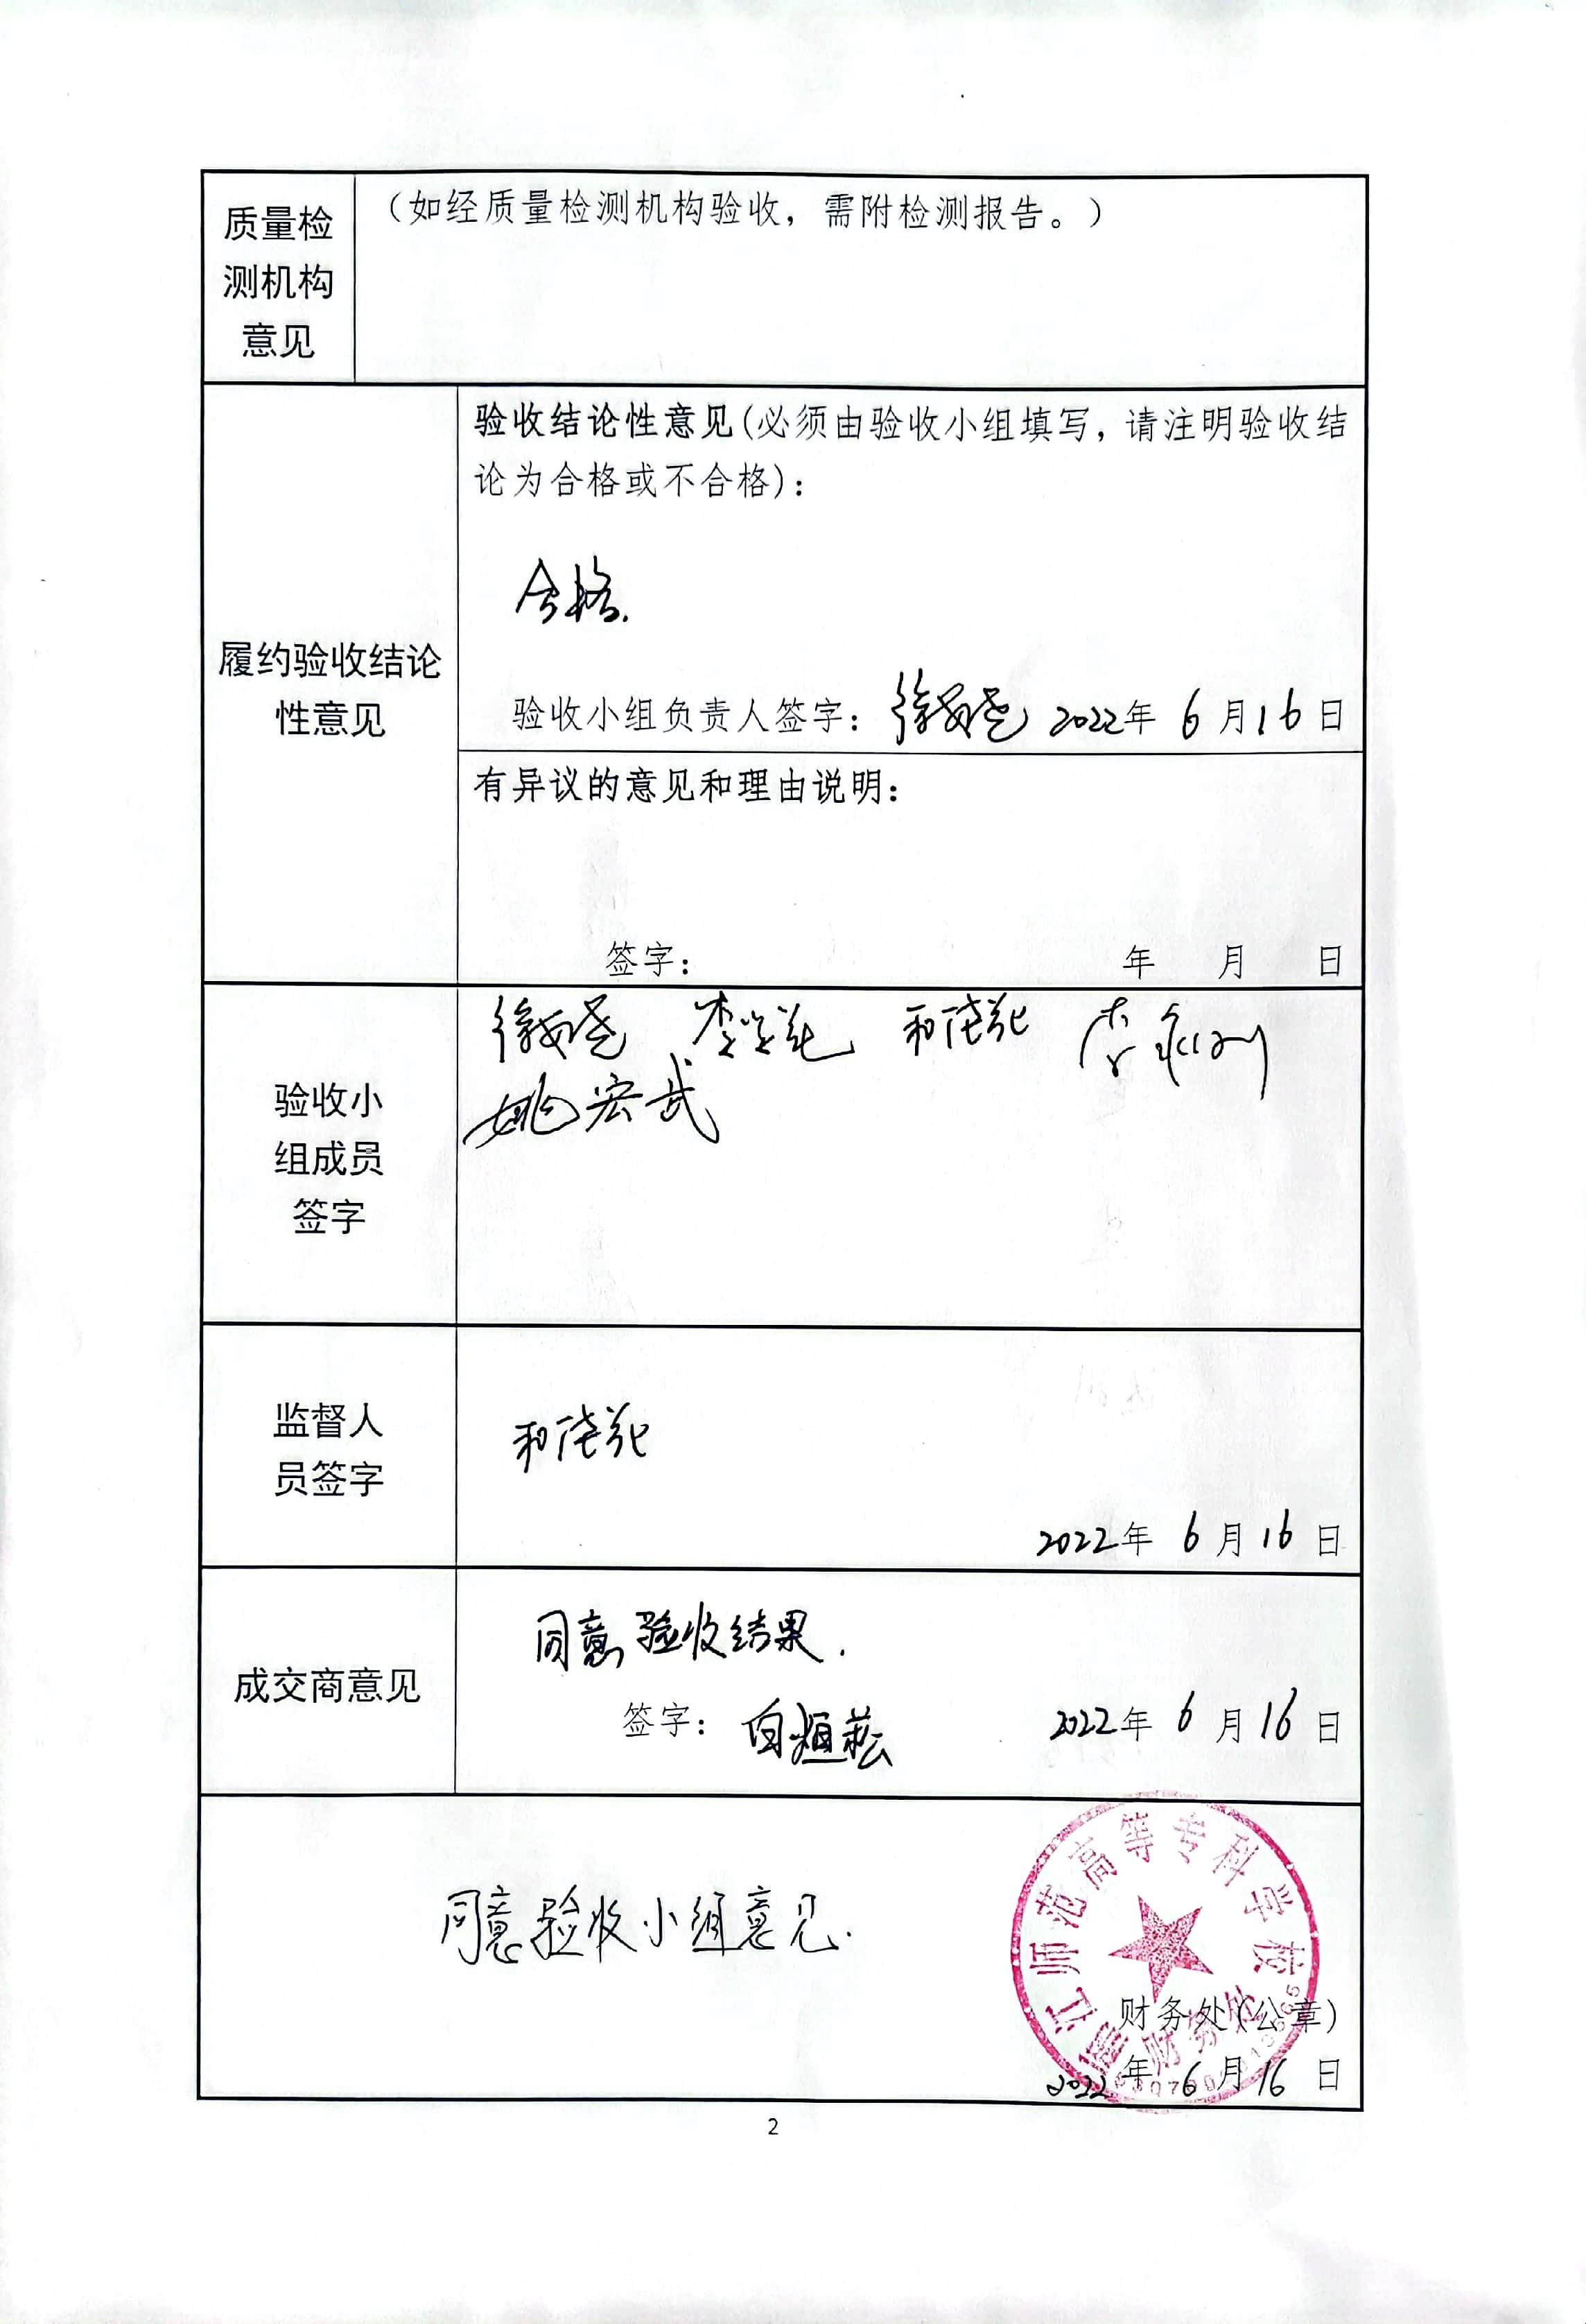 质量检
测机构
意见
（如经质量检测机构验收，需附检测报告。）
履约验收结论
性意见
验收结论性意见(必须由验收小组填写，请注明验收结
论为合格或不合格)：
合格.
验收小组负责人签字： 2022年 6 月16日
有异议的意见和理由说明：
签字： 年 月 日
验收小
组成员
签字
姚宏武
监督人
员签字
2022年 6 月 16 日
成交商意见
同意验收结果.
签字： 2022年 6 月 16 日
同意验收小组意见.
丽江师范高等专科学校
财务处
财务处(公章)
2022年 6月 16 日
2